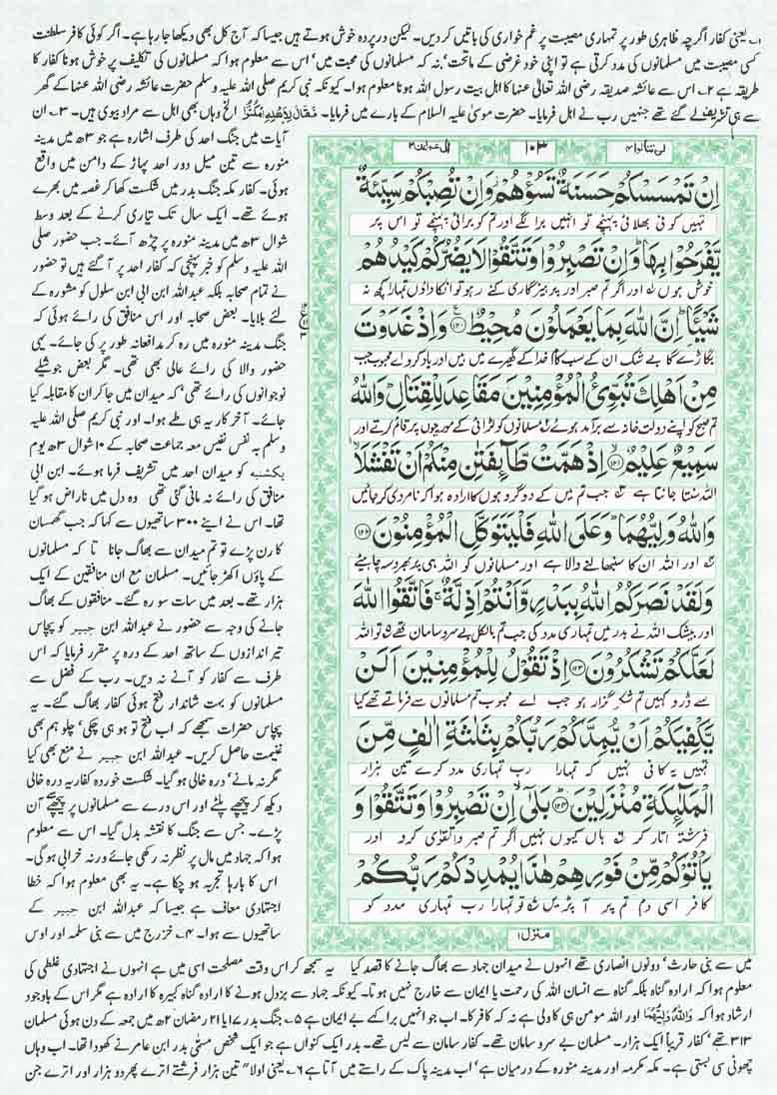 ۱۔ یعنی کفار اگرچہ ظاہری طور پر تمہاری مصیبت پر غم خواری کی باتیں کر دیں۔ لیکن درپردہ خوش ہوتے ہیں جیسا کہ آج کل بھی دیکھا جا رہا ہے۔ اگر کوئی کافر سلطنت
کسی مصیبت میں مسلمانوں کی مدد کرتی ہے تو اپنی خود غرضی کے ماتحت، نہ کہ مسلمانوں کی محبت میں، اس سے معلوم ہوا کہ مسلمانوں کی تکلیف پر خوش ہونا کفار کا
طریقہ ہے ۲۔ اس سے عائشہ صدیقہ رضی اللہ تعالیٰ عنہا کا اہل بیت رسول اللہ ہونا معلوم ہوا۔ کیونکہ نبی کریم صلی اللہ علیہ وسلم حضرت عائشہ رضی اللہ عنہا کے گھر
سے ہی تشریف لے گئے تھے جنہیں رب نے اہل فرمایا۔ حضرت موسیٰ علیہ السلام کے بارے میں فرمایا۔ فَقَالَ لِاَهْلِهِ امْكُثُوْٓا الخ وہاں بھی اہل سے مراد بیوی ہیں۔ ۳۔ ان
آیات میں جنگ احد کی طرف اشارہ ہے جو ۳ھ میں مدینہ
منورہ سے تین میل دور احد پہاڑ کے دامن میں واقع
ہوئی۔ کفار مکہ جنگ بدر میں شکست کھا کر غصہ میں بھرے
ہوئے تھے۔ ایک سال تک تیاری کرنے کے بعد وسط
شوال ۳ھ میں مدینہ منورہ پر چڑھ آئے۔ جب حضور صلی
اللہ علیہ وسلم کو خبر پہنچی کہ کفار احد پر آ گئے ہیں تو حضور
نے تمام صحابہ بلکہ عبداللہ ابن ابی ابن سلول کو مشورہ کے
لئے بلایا۔ بعض صحابہ اور اس منافق کی رائے ہوئی کہ
جنگ مدینہ منورہ میں رہ کر مدافعانہ طور پر کی جائے۔ یہی
حضور والا کی رائے عالی بھی تھی۔ مگر بعض جوشیلے
نوجوانوں کی رائے تھی، کہ میدان میں جا کر ان کا مقابلہ کیا
جائے۔ آخر کار یہ ہی طے ہوا۔ اور نبی کریم صلی اللہ علیہ
وسلم بہ نفس نفیس معہ جماعت صحابہ کے ۱۰ شوال ۳ھ یوم
یکشنبہ کو میدان احد میں تشریف فرما ہوئے۔ ابن ابی
منافق کی رائے نہ مانی گئی تھی وہ دل میں ناراض ہو گیا
تھا۔ اس نے اپنے ۳۰۰ ساتھیوں سے کہا کہ جب گھمسان
کا رن پڑے تو تم میدان سے بھاگ جانا تا کہ مسلمانوں
کے پاؤں اکھڑ جائیں۔ مسلمان مع ان منافقین کے ایک
ہزار تھے۔ بعد میں سات سو رہ گئے۔ منافقوں کے بھاگ
جانے کی وجہ سے حضور نے عبداللہ ابن جبیر کو پچاس
تیر اندازوں کے ساتھ احد کے درہ پر مقرر فرمایا کہ اس
طرف سے کفار کو آنے نہ دیں۔ رب کے فضل سے
مسلمانوں کو بہت شاندار فتح ہوئی کفار بھاگ گئے۔ یہ
پچاس حضرات سمجھے کہ اب فتح تو ہو ہی چکی، چلو ہم بھی
غنیمت حاصل کریں۔ عبداللہ ابن جبیر نے منع بھی کیا
مگر نہ مانے، درہ خالی ہو گیا۔ شکست خوردہ کفار یہ درہ خالی
دیکھ کر پیچھے پلٹے اور اس درے سے مسلمانوں پر پیچھے آن
پڑے۔ جس سے جنگ کا نقشہ بدل گیا۔ اس سے معلوم
ہوا کہ جہاد میں مال پر نظر نہ رکھی جائے ورنہ خرابی ہو گی۔
اس کا بارہا تجربہ ہو چکا ہے۔ یہ بھی معلوم ہوا کہ خطا
اجتہادی معاف ہے جیسا کہ عبداللہ ابن جبیر کے
ساتھیوں سے ہوا۔ ۴۔ خزرج میں سے بنی سلمہ اور اوس
لن تنالوا ۴ ۱۰۳ اٰل عمرٰن ۳
اِنْ تَمْسَسْكُمْ حَسَنَةٌ تَسُؤْهُمْ وَاِنْ تُصِبْكُمْ سَيِّئَةٌ
تمہیں کوئی بھلائی پہنچے تو انہیں برا لگے اور تم کو برائی پہنچے تو اس پر
يَّفْرَحُوْا بِهَا وَاِنْ تَصْبِرُوْا وَتَتَّقُوْا لَا يَضُرُّكُمْ كَيْدُهُمْ
خوش ہوں ۱ اور اگر تم صبر اور پرہیزگاری کئے رہو تو انکا داؤں تمہارا کچھ نہ
شَيْئًا اِنَّ اللّٰهَ بِمَا يَعْمَلُوْنَ مُحِيْطٌ ۱۲۰ وَاِذْ غَدَوْتَ
بگاڑے گا بے شک ان کے سب کام خدا کے گھیرے میں ہیں اور یاد کرو اے محبوب جب
مِنْ اَهْلِكَ تُبَوِّئُ الْمُؤْمِنِيْنَ مَقَاعِدَ لِلْقِتَالِ وَاللّٰهُ
تم صبح کو اپنے دولت خانہ سے برآمد ہوئے ۲ مسلمانوں کو لڑائی کے مورچوں پر قائم کرتے اور
سَمِيْعٌ عَلِيْمٌ ۱۲۱ اِذْ هَمَّتْ طَّآئِفَتٰنِ مِنْكُمْ اَنْ تَفْشَلَا
اللہ سنتا جانتا ہے ۳ جب تم میں کے دو گروہوں کا ارادہ ہوا کہ نامردی کر جائیں
وَاللّٰهُ وَلِيُّهُمَا وَعَلَى اللّٰهِ فَلْيَتَوَكَّلِ الْمُؤْمِنُوْنَ ۱۲۲
۴ اور اللہ ان کا سنبھالنے والا ہے اور مسلمانوں کو اللہ ہی پر بھروسہ چاہیئے
وَلَقَدْ نَصَرَكُمُ اللّٰهُ بِبَدْرٍ وَّاَنْتُمْ اَذِلَّةٌ فَاتَّقُوا اللّٰهَ
اور بیشک اللہ نے بدر میں تمہاری مدد کی جب تم بالکل بے سرو سامان تھے ۵ تو اللہ
لَعَلَّكُمْ تَشْكُرُوْنَ ۱۲۳ اِذْ تَقُوْلُ لِلْمُؤْمِنِيْنَ اَلَنْ
سے ڈرو کہیں تم شکر گزار ہو جب اے محبوب تم مسلمانوں سے فرماتے تھے کیا
يَّكْفِيَكُمْ اَنْ يُّمِدَّكُمْ رَبُّكُمْ بِثَلٰثَةِ اٰلٰفٍ مِّنَ
تمہیں یہ کافی نہیں کہ تمہارا رب تمہاری مدد کرے تین ہزار
الْمَلٰٓئِكَةِ مُنْزَلِيْنَ ۱۲۴ بَلٰى اِنْ تَصْبِرُوْا وَتَتَّقُوْا وَ
فرشتہ اتار کر ۶ ہاں کیوں نہیں اگر تم صبر و تقوٰی کرو اور
يَاْتُوْكُمْ مِّنْ فَوْرِهِمْ هٰذَا يُمْدِدْكُمْ رَبُّكُمْ
کافر اسی دم تم پر آ پڑیں تو تمہارا رب تمہاری مدد کو
منزل ۱
میں سے بنی حارثہ، دونوں انصاری تھے انہوں نے میدان جہاد سے بھاگ جانے کا قصد کیا یہ سمجھ کر اس وقت مصلحت اسی میں ہے انہوں نے اجتہادی غلطی کی
معلوم ہوا کہ ارادہ گناہ بلکہ گناہ سے انسان اللہ کی رحمت یا ایمان سے خارج نہیں ہوتا۔ کیونکہ جہاد سے بزدل ہونے کا ارادہ گناہ کبیرہ کا ارادہ ہے مگر اس کے باوجود
ارشاد ہوا کہ وَاللّٰهُ وَلِيُّهُمَا اور اللہ مومن ہی کا ولی ہے نہ کہ کافر کا۔ اب جو انہیں برا کہے بے ایمان ہے ۵۔ جنگ بدر ۱۷ یا ۲۱ رمضان ۲ھ میں جمعہ کے دن ہوئی مسلمان
۳۱۳ تھے، کفار قریباً ایک ہزار۔ مسلمان بے سرو سامان تھے۔ کفار سامان سے لیس تھے۔ بدر ایک کنواں ہے جو ایک شخص مسمّٰی بدر ابن عامر نے کھودا تھا۔ اب وہاں
چھوٹی سی بستی ہے۔ مکہ مکرمہ اور مدینہ منورہ کے درمیان ہے، اب مدینہ پاک کے راستے میں آتا ہے ۶۔ یعنی اولاً تین ہزار فرشتے اترے پھر دو ہزار اور اترے جن